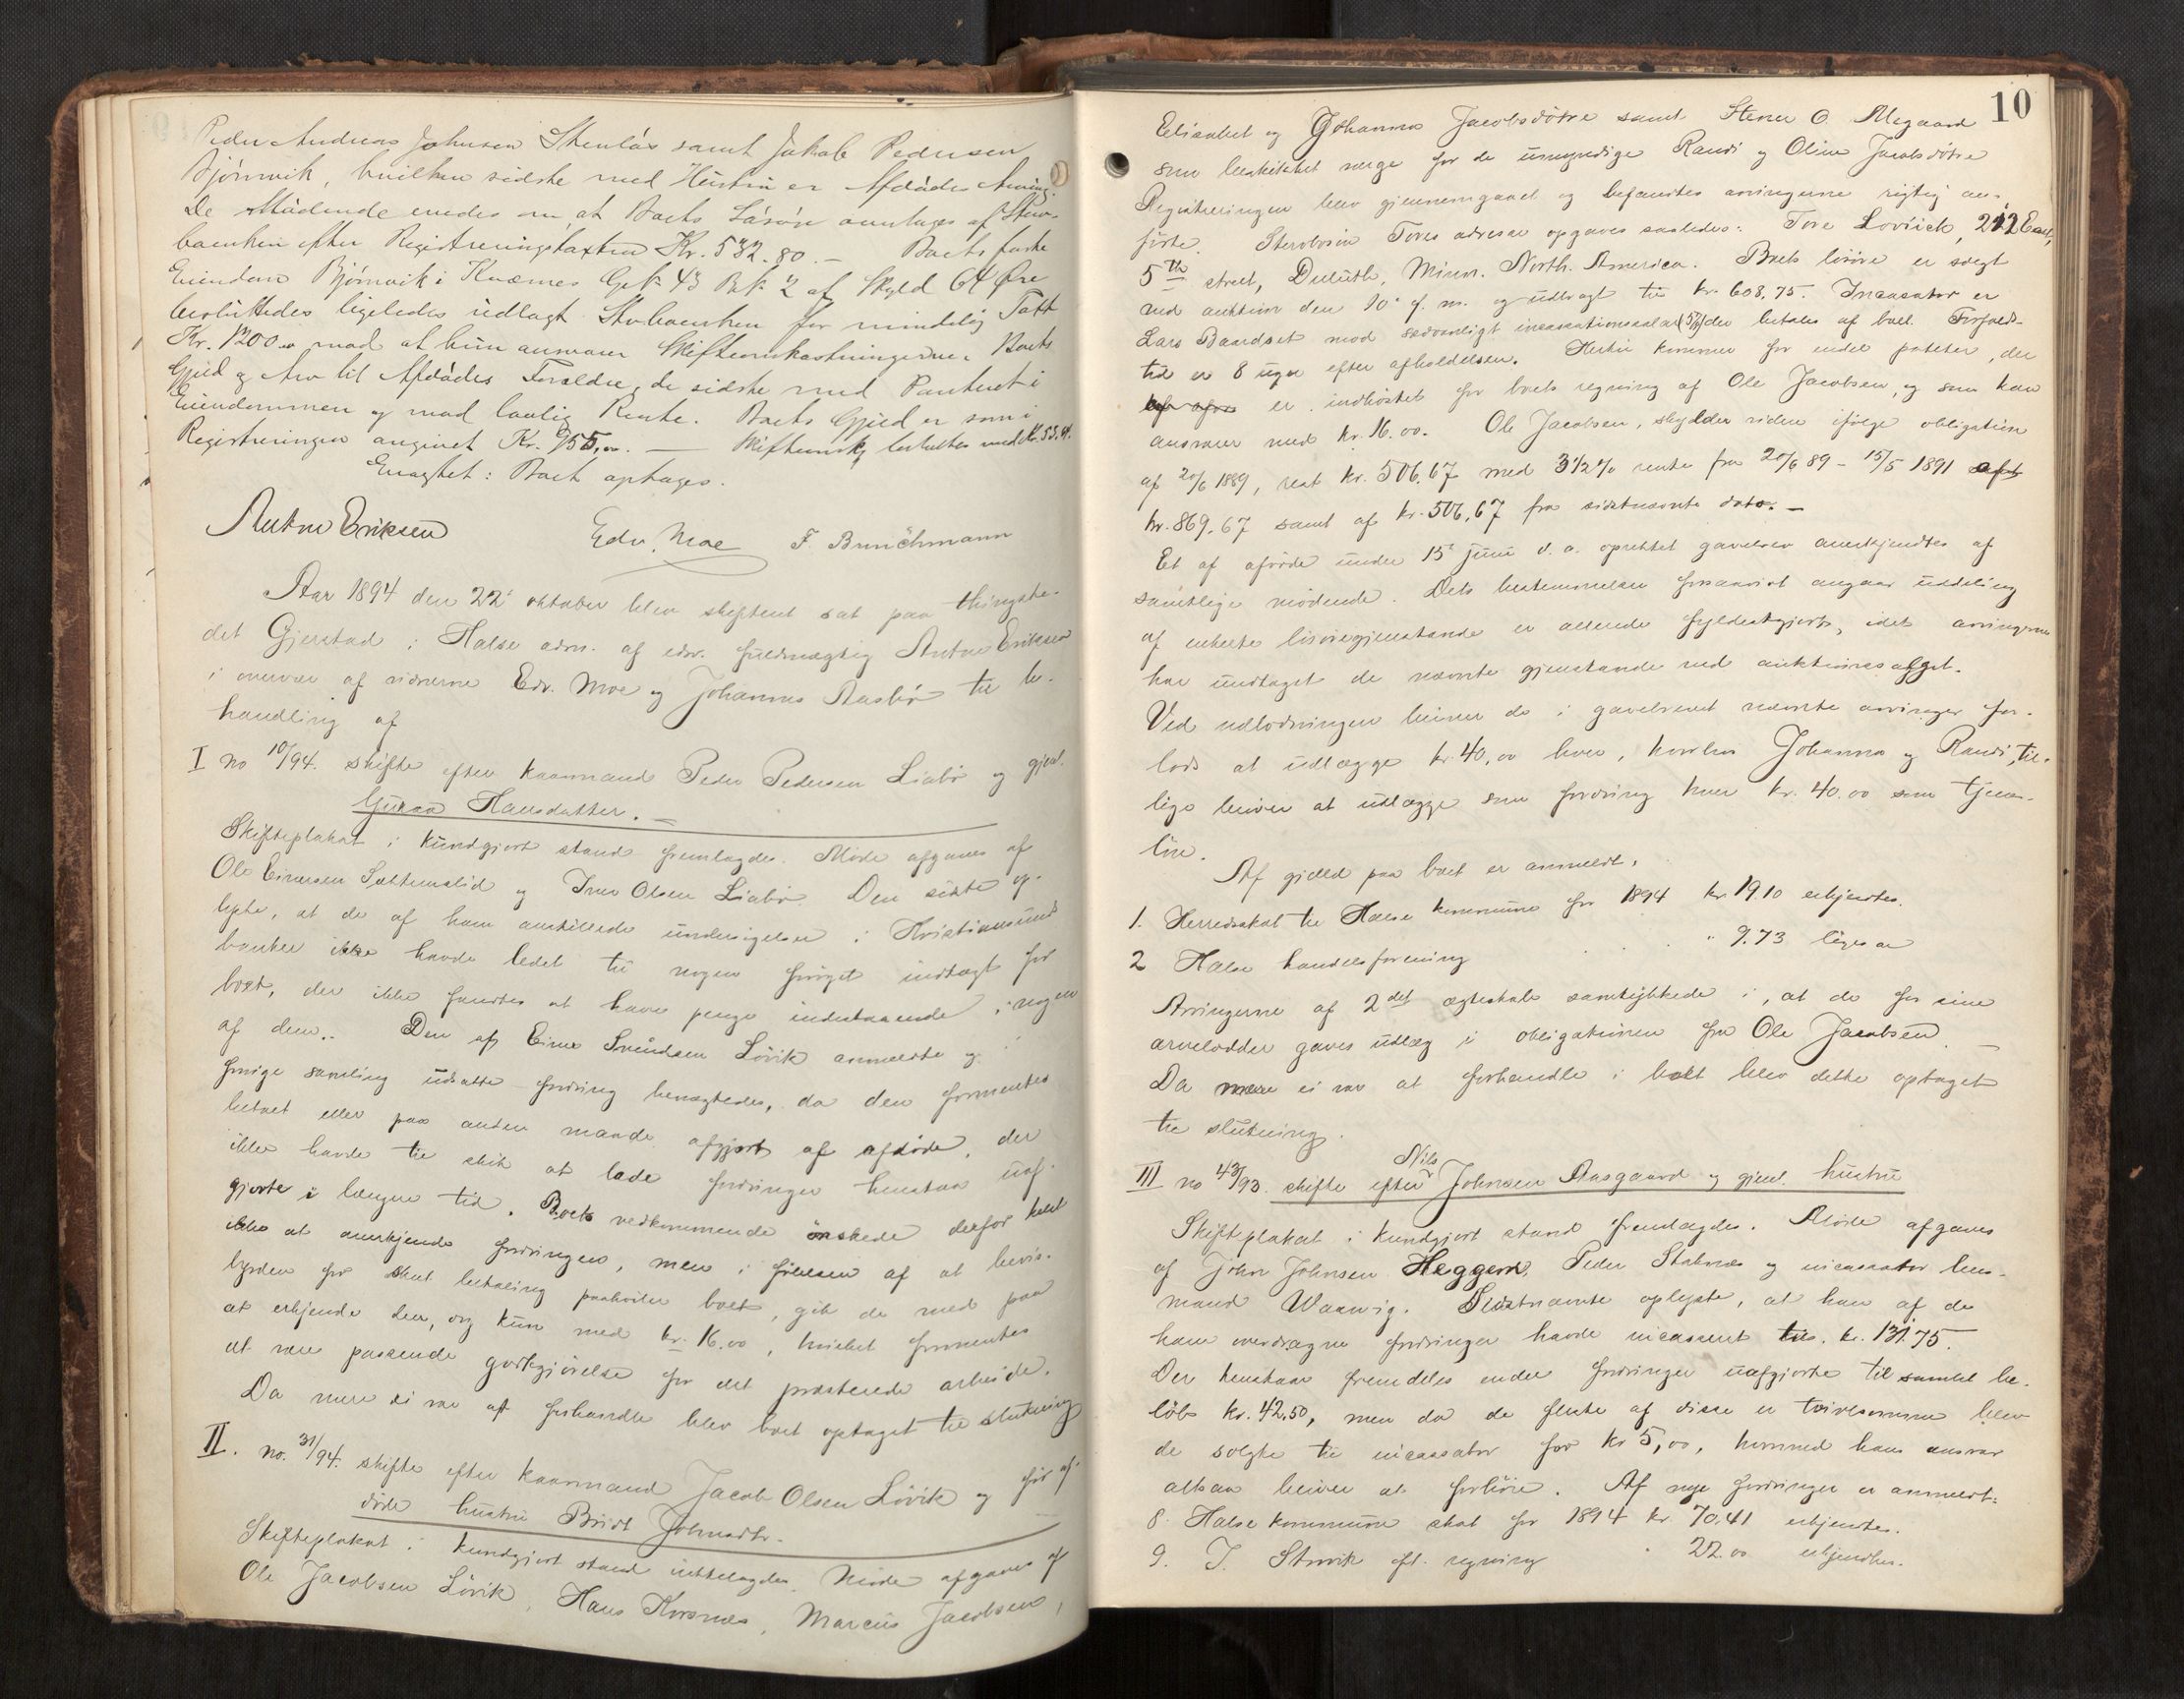 Peder Andreas Johnsen Stenlös samt Jakob Pedersen
Bjørnvik, hvilken sidste med Hustru er Afdødes Arving.
De Mødende enedes om at Boets Løsøre overtages af Stervboenken
efter Registreringstaxten Kr. 532.80. — Boets faste
Eiendom Bjørnvik i Kvernes G.№ 43 B.№ 2 af Skyld 64 Øre
besluttedes ligeledes udlagt Stvboenken for mindelig Taxt
Kr. 1200.00 mod at hun ansvarer Skifteomkostningerne, Boets
Gjeld og Arv til Afdødes Forældre, de sidste med Panteret i
Eiendommen og mod lovlig Rente. Boets Gjeld er som i
Registreringen angivet Kr. 955,00. — Skifteomk. besluttes med Kr. 53.
Eragtet: Boet optages.
Anton Eriksen Edv. Moe F. Brunchmann
Aar 1894 den 22' oktober blev skifteret sat paa thingste-
det Gjerstad i Halse adm. af edsv. fuldmægtig Anton Eriksen
i overvær af vidnerne Edv. Moe og Johannes Aasbø til be-
handling af
I no 10/94. skifte efter kaarmand Peder Pedersen Liabø og gjenl.
Guroa Hansdatter. —
Skifteplakat i kundgjort stand fremlagdes. Møde afgaves af
Ole Einersen Settemslid og Iver Olsen Liabø. Den sidste op-
lyste, at de af ham anstillede undersøgelser i Kristiansunds
banker ikke havde ledet til nogen forøget indtægt for
boet, der ikke fandtes at have penge indestaaende i nogen
af dem. Den af Einer Svendsen Løvik anmeldte og i
forrige samling udsatte fordring benægtedes, da den formentes
betalt eller paa anden maade afgjort af afdøde, der
ikke havde til skik at lade fordringer henstaa uaf-
gjorte i længre tid. Boets vedkommende ønskede derfor helst
ikke at anerkjende fordringen, men i følelsen af at bevis-
byrden for skeet betaling paahviler boet, gik de med paa
at erkjende den, og kun med kr. 16.00, hvilket formentes
at være passende godtgjørelse for det præsterede arbeide.
Da mere ei var at forhandle blev boet optaget til slutning
II. no. 31/94. skifte efter kaarmand Jacob Olsen Løvik og før af-
døde hustru Bridt Johnsdtr.
Skifteplakat i kundgjort stand irettelagdes. Møde afgaves af
Ole Jacobsen Løvik, Hans Korsnes, Marcus Jacobsen,
10
Elisabet og Johanna Jacobsdøtre samt Stener O. Megaard
som beskikket verge for de umyndige Randi og Oline Jacobsdøtre
Registreringen blev gjennemgaaet og befandtes arvingerne rigtig an-
førte. Stervbosøn Tores adresse opgaves saaledes: Tore Loviick, 212 East,
5th street, Duluth, Minn. North. America. Boets løsøre er solgt
ved auktion den 10' f. m. og udbragt til kr. 608,75. Incasator er
Lars Baardset mod sedvanligt incasationssalær (5%) der betales af boet. Forfalds-
tid er 8 uger efter afholdelsen. Hertil kommer for endel poteter, der
er indhøstet for boets regning af Ole Jacobsen, og som han
ansvarer med kr. 16.00. Ole Jacobsen, skylder videre ifølge obligation
af 20/6 1889, rest kr. 506.67 med 3½% rente fra 20/6 89 – 15/5 1891 af
kr. 869.67 samt af kr. 506,67 fra sidstnævnte dato. —
Et af afdøde under 15' juni d. a. oprettet gavebrev anerkjendtes af
samtlige mødende. Dets bestemmelser forsaavidt angaar uddeling
af enkelte løsøregjenstande er allerede fyldestgjorte, idet arvingerne
har undtaget de nævnte gjenstande ved auktionssalget.
Ved udlodningen bliver de i gavebrevet nævnte arvinger for-
lods at udlægge kr. 40,00 hver, hvorhos Johanna og Randi, til-
lige bliver at udlægge som fordring hver kr. 40.00 som tjene-
løn.
Af gjæld paa boet er anmeldt:
1. Herredsskat til Halse kommune for 1894 kr. 19.10 erkjendtes.
2 Halse handelsforening " 9.73 ligesaa
Arvingerne af 2det ægteskab samtykkede i, at de for sine
arvelodder gaves udlæg i obligationen fra Ole Jacobsen. —
Da mere ei var at forhandle i boet blev dette optaget
til slutning.
III no 43/93. skifte efter Nils Johnsen Aasgaard og gjenl. hustru
Skifteplakat i kundgjort stand fremlagdes. Møde afgaves
af John Johnsen Heggem, Peder Stabnæs og incassator lens-
mand Waarvig. Sidstnævnte oplyste, at han af de
ham overdragne fordringer havde incasseret tils. kr. 131.75.
Der henstaar fremdeles endel fordringer uafgjorte til samlet be-
løb kr. 42.50, men da de fleste af disse er tvivlsomme blev
de solgte til incassator for kr 5,00, hvormed hans ansvar
altsaa bliver at forhøie. Af nye fordringer er anmeldt:
8. Halse kommune skat for 1894 kr. 70.41 erkjendtes.
9. J. Storvik efl. regning " 22.00 erkjendtes.